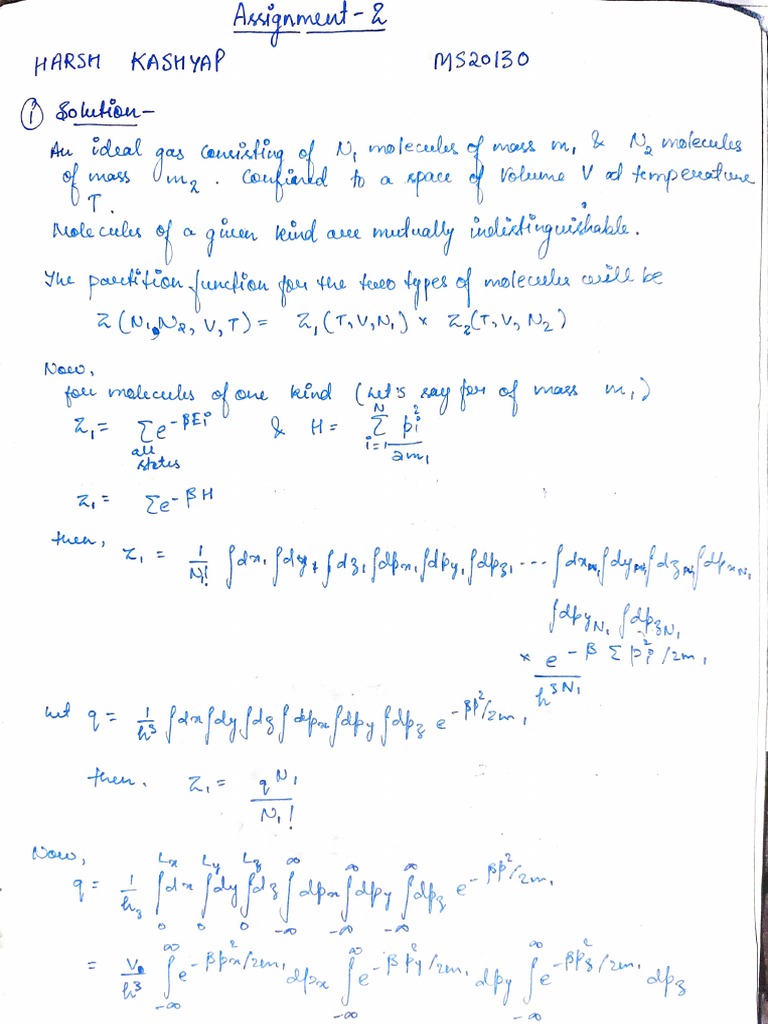 Assignment - 2
HARSH KASHYAP MS20130
① Solution -
An ideal gas consisting of N₁ molecules of mass m₁ & N₂ molecules
of mass m₂. Confined to a space of volume V at temperature
T.
Molecules of a given kind are mutually indistinguishable.
The partition function for the two types of molecules will be
Z (N₁, N₂, V, T) = Z₁ (T, V, N₁) × Z₂ (T, V, N₂)
Now,
for molecules of one kind (let's say for of mass m₁)
Z₁ = Σ_{all states} e^{-βEi} & H = Σ_{i=1}^{N} pᵢ²/2m₁
Z₁ = Σ e^{-βH}
then, Z₁ = 1/N₁! ∫dx₁ ∫dy₁ ∫dz₁ ∫dpx₁ ∫dpy₁ ∫dpz₁ ... ∫dx_{N₁} ∫dy_{N₁} ∫dz_{N₁} ∫dpx_{N₁}
∫dpy_{N₁} ∫dpz_{N₁}
× e^{-β Σ pᵢ²/2m₁} / h^{3N₁}
Let q = 1/h³ ∫dx ∫dy ∫dz ∫dpx ∫dpy ∫dpz e^{-βp²/2m₁}
then. Z₁ = q^{N₁} / N₁!
Now,
q = 1/h₃ ∫₀^{Lx} dx ∫₀^{Ly} dy ∫₀^{Lz} dz ∫_{-∞}^{∞} dpx ∫_{-∞}^{∞} dpy ∫_{-∞}^{∞} dpz e^{-βp²/2m₁}
= V/h³ ∫_{-∞}^{∞} e^{-βpx²/2m₁} dpx ∫_{-∞}^{∞} e^{-βpy²/2m₁} dpy ∫_{-∞}^{∞} e^{-βpz²/2m₁} dpz